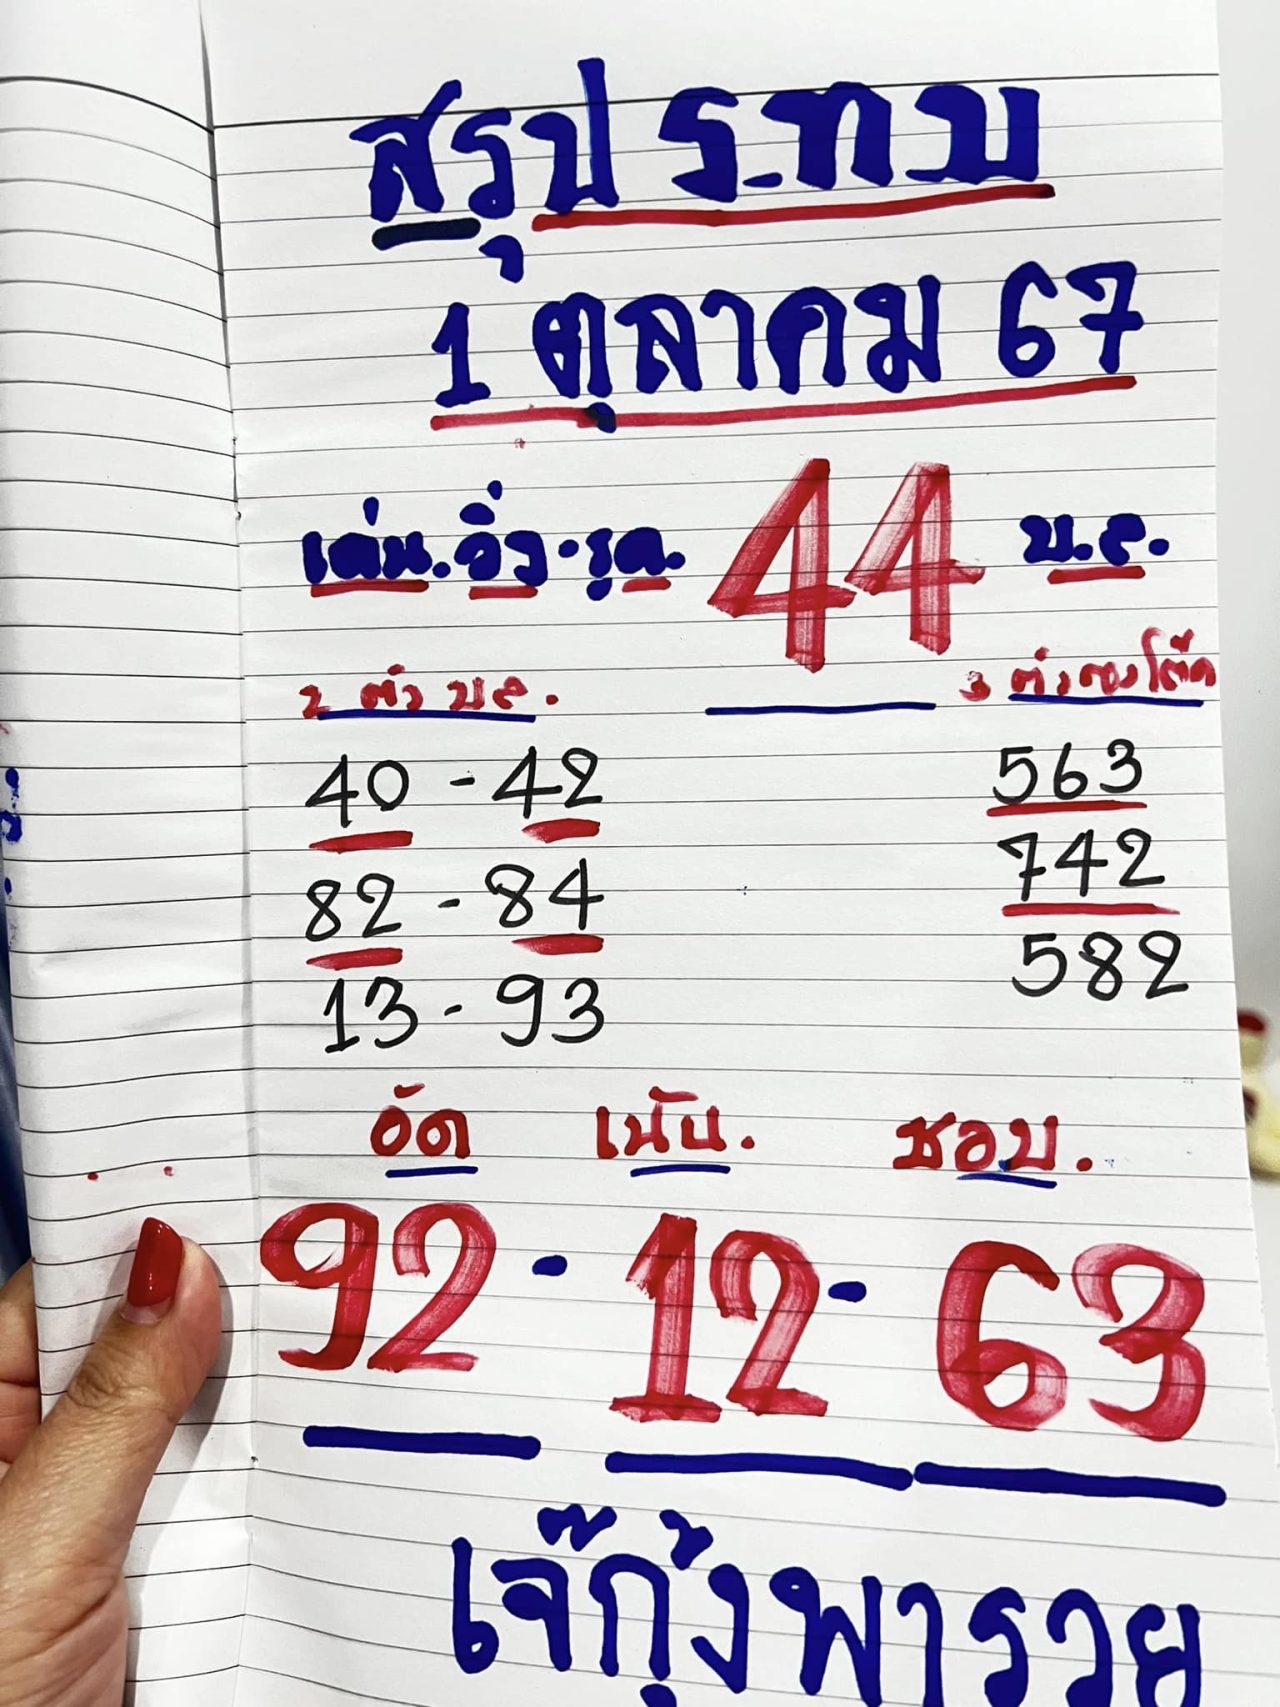 สรุป ร.ทบ
1 ตุลาคม 67
เด่น.วิ่ง.รูด. 44 บ.ล.
2 ตัว บ.ล. 3 ตัวตรงโต๊ด
40 - 42 563
82 - 84 742
13 - 93 582
อัด เน้น. ชอบ.
92 - 12 - 63
เจ๊กุ้งพารวย